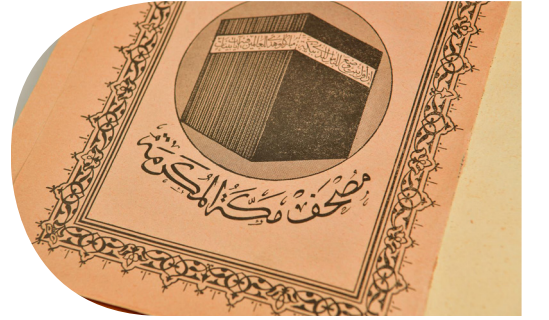 مُصْحَفُ مَكَّةَ الْمُكَرَّمَةِ